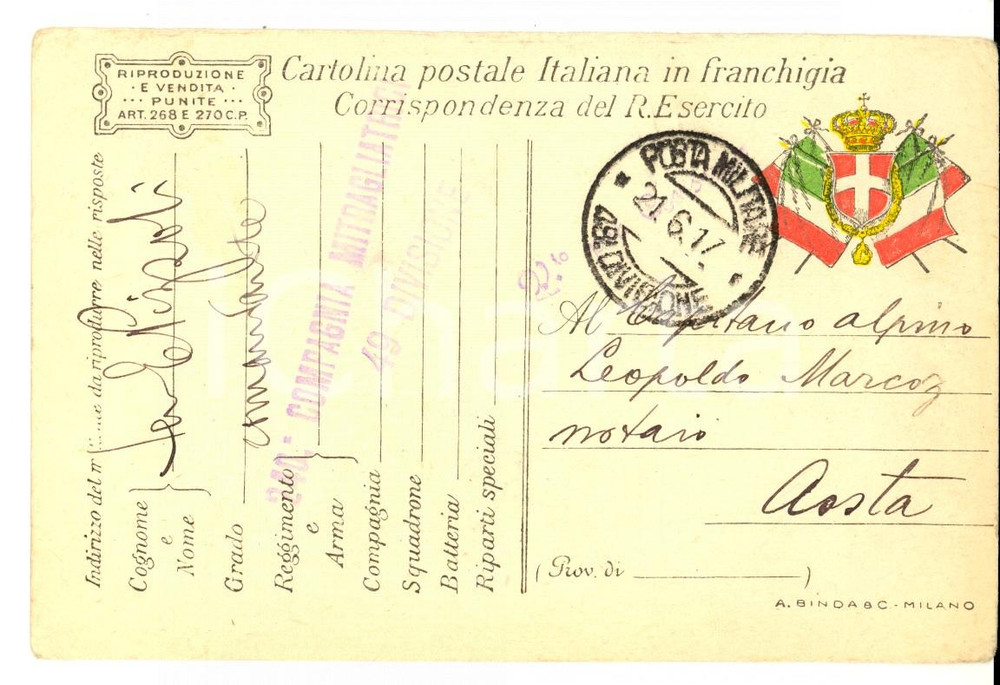 RIPRODUZIONE
E VENDITA
PUNITE
ART. 268 E 270 C.P.
Cartolina postale Italiana in franchigia
Corrispondenza del R. Esercito
POSTA MILITARE
21.6.17
DIVISIONE
Al Capitano alpino
Leopoldo Marcoz
notaio
Aosta
(Prov. di )
A. BINDA & C. - MILANO
Indirizzo del mittente da riprodurre nelle risposte
Cognome
e
Nome
Grado
Comandante
240.a COMPAGNIA MITRAGLIATRICI
49 DIVISIONE
Reggimento
e
Arma
Compagnia
Squadrone
Batteria
Riparti speciali